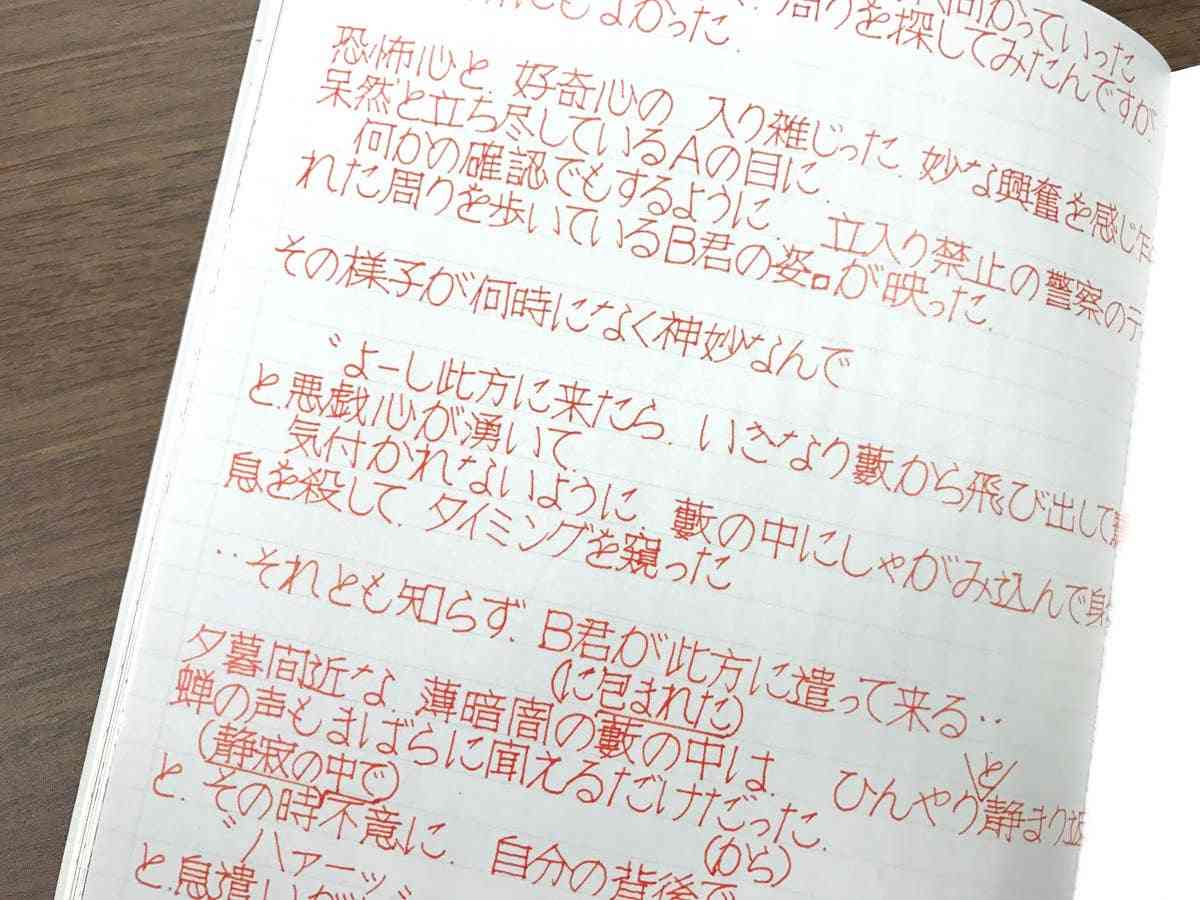 にもよかった.
周りを探してみたんですが.
恐怖心と. 好奇心の 入り雑じった. 妙な興奮を感じ乍
呆然と立ち尽しているAの目に.
何かの確認でもするように. 立入り禁止の警察のテ
れた周りを歩いているB君の姿が映った.
その様子が何時になく神妙なんで
〝よーし此方に来たら. いきなり藪から飛び出して
と.悪戯心が湧いて.
気付かれないように. 藪の中にしゃがみ込んで身
息を殺して. タイミングを窺った
‥それとも知らず. B君が此方に遣って来る‥
(に包まれた)
夕暮間近な. 薄暗闇の藪の中は. ひんやり静まり返
と
蝉の声もまばらに聞えるだけだった.
(静寂の中で)
と. その時不意に. 自分の背後で
(から)
〝ハァーッ〟
と.息遣いが